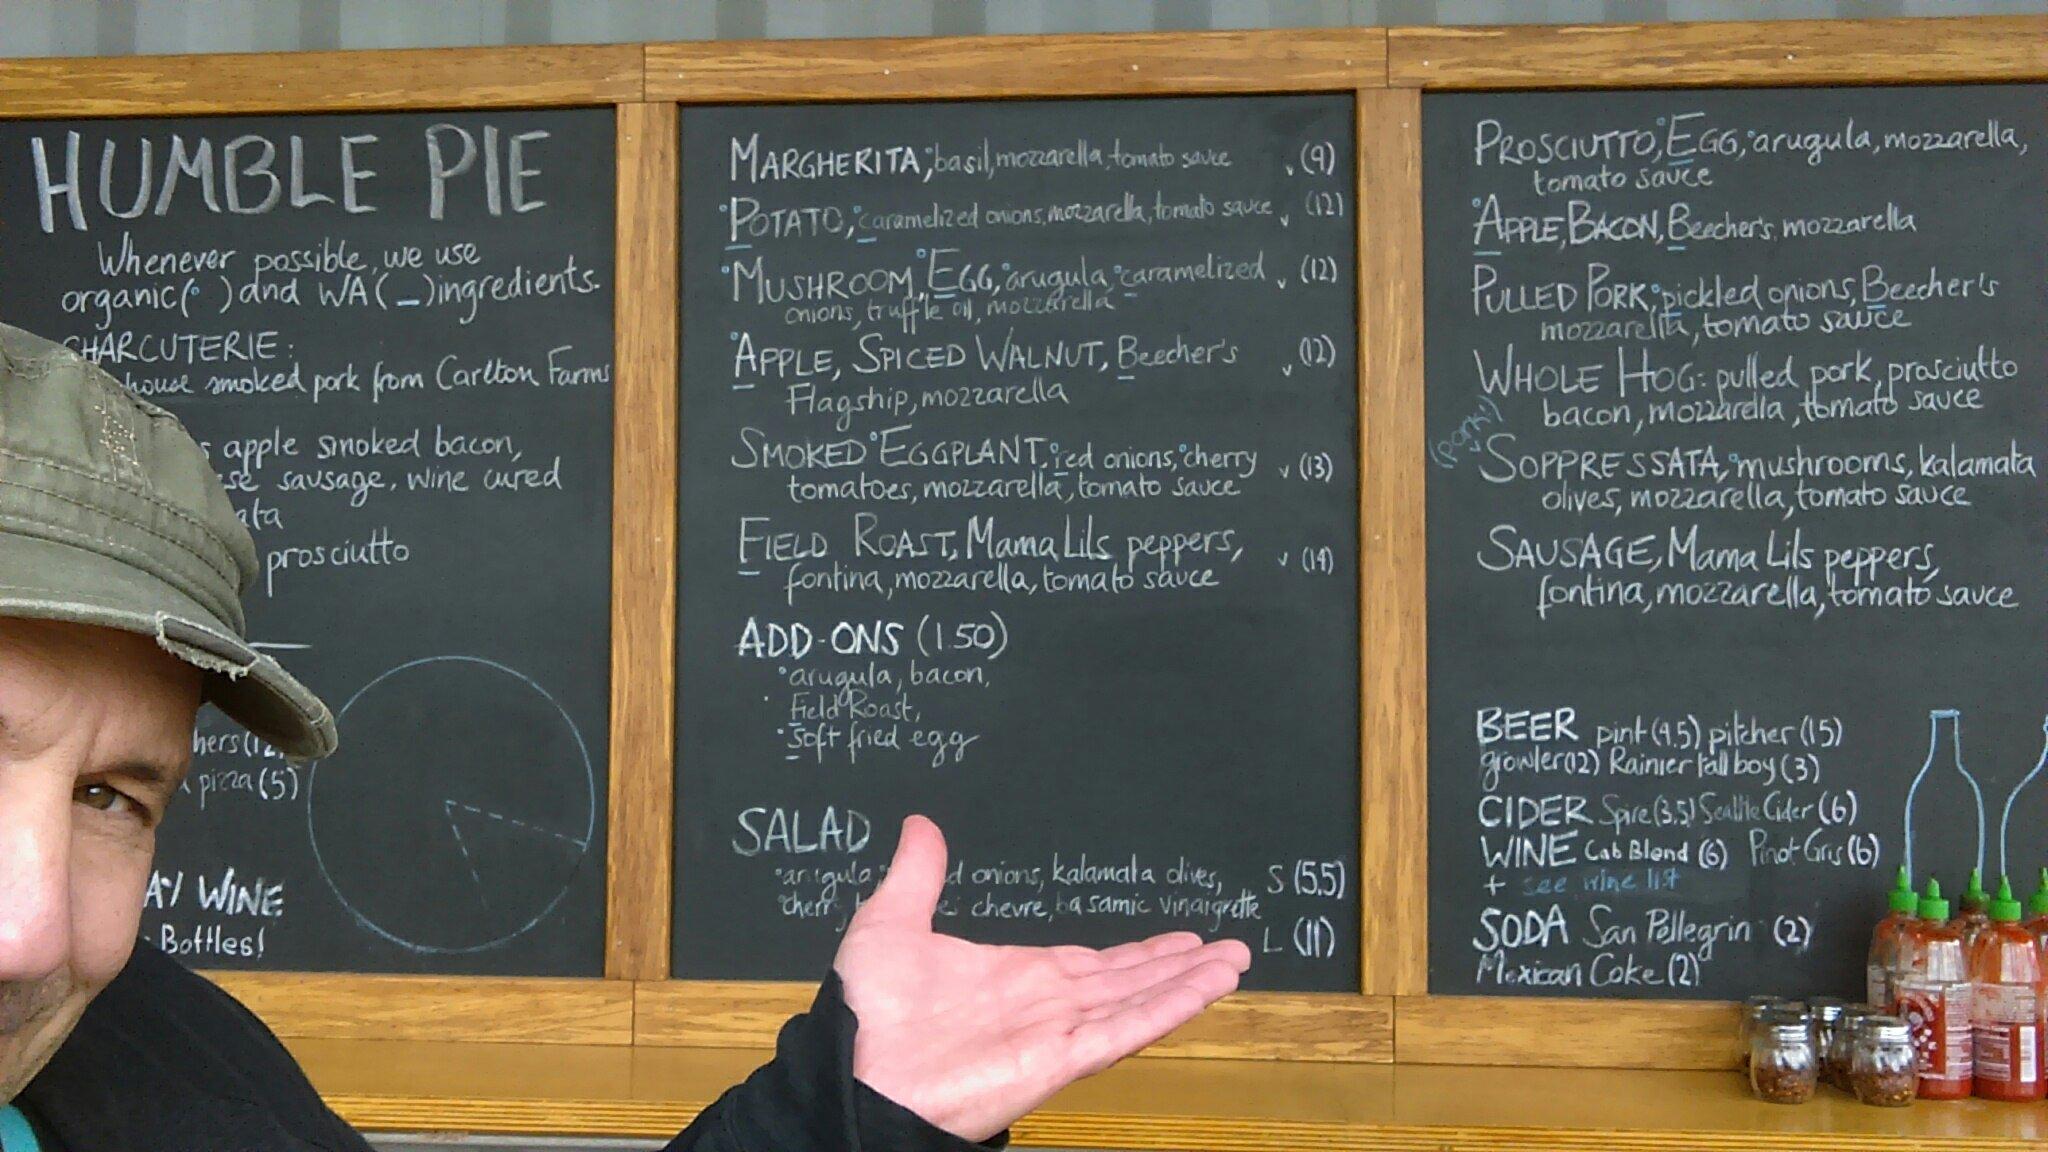 HUMBLE PIE
Whenever possible, we use
organic(°) and WA(_)ingredients.
CHARCUTERIE:
house smoked pork from Carlton Farms
apple smoked bacon,
sausage, wine cured
prosciutto
pizza (5)
WINE
Bottles!
MARGHERITA, °basil, mozzarella, tomato sauce v (9)
°POTATO, °caramelized onions, mozzarella, tomato sauce v (12)
°MUSHROOM, °EGG, °arugula, °caramelized v (12)
onions, truffle oil, mozzarella
°APPLE, SPICED WALNUT, Beecher's v (12)
Flagship, mozzarella
SMOKED °EGGPLANT, °red onions, °cherry v (13)
tomatoes, mozzarella, tomato sauce
FIELD ROAST, Mama Lils peppers, v (14)
fontina, mozzarella, tomato sauce
ADD-ONS (1.50)
°arugula, bacon,
Field Roast,
°soft fried egg
SALAD
°arugula, onions, kalamata olives, S (5.5)
°cherry chevre, balsamic vinaigrette
L (11)
PROSCIUTTO, °EGG, °arugula, mozzarella,
tomato sauce
°APPLE, BACON, Beecher's, mozzarella
PULLED PORK, °pickled onions, Beecher's
mozzarella, tomato sauce
WHOLE HOG: pulled pork, prosciutto
bacon, mozzarella, tomato sauce
(pork)
SOPPRESSATA, °mushrooms, kalamata
olives, mozzarella, tomato sauce
SAUSAGE, Mama Lils peppers,
fontina, mozzarella, tomato sauce
BEER pint (4.5) pitcher (15)
growler (12) Rainier tall boy (3)
CIDER Spire (3.5) Seattle Cider (6)
WINE Cab Blend (6) Pinot Gris (6)
+ see wine list
SODA San Pellegrin (2)
Mexican Coke (2)